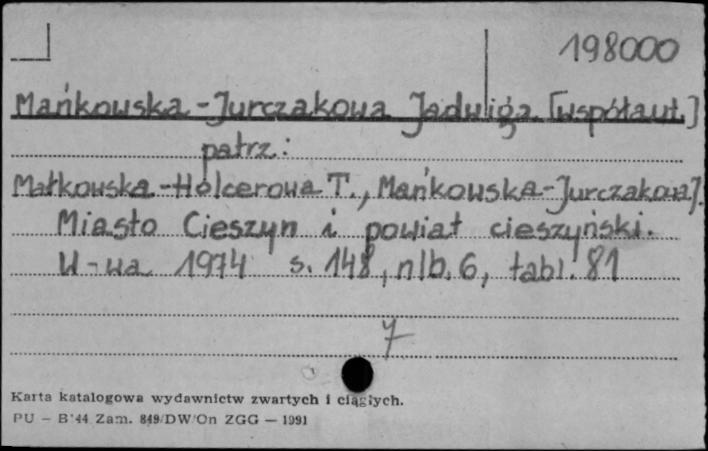 198000
Mańkowska-Jurczakowa Jadwiga [współaut.]
patrz:
Małkowska-Holcerowa T., Mańkowska-Jurczakowa J.
Miasto Cieszyn i powiat cieszyński.
W-wa 1974 s. 148, nlb. 6, tabl. 81
7
Karta katalogowa wydawnictw zwartych i ciągłych.
PU – B'44 Zam. 849/DW/On ZGG — 1991